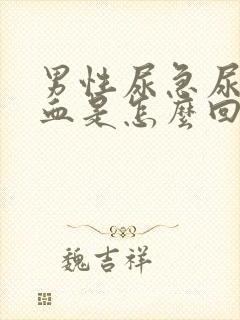 男性尿急尿
血是怎麼回
魏吉祥